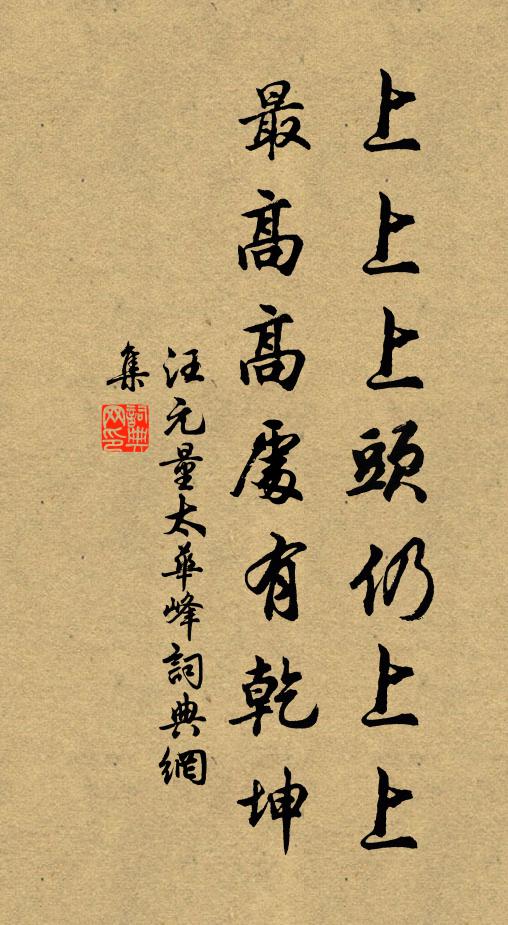 上上上頭仍上上
最高高處有乾坤
汪元量太華峰詞典網
集
詞典
网印